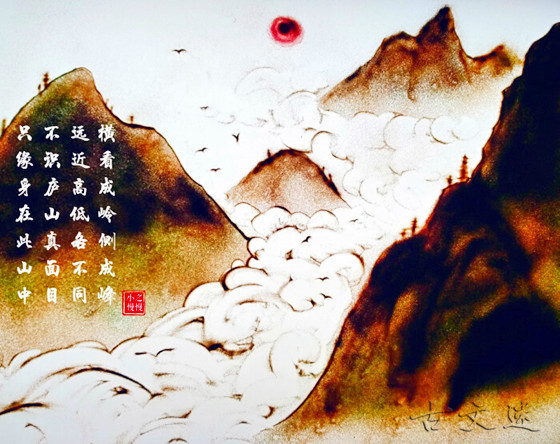 横看成岭侧成峰
远近高低各不同
不识庐山真面目
只缘身在此山中
之慢
小慢
古文迷